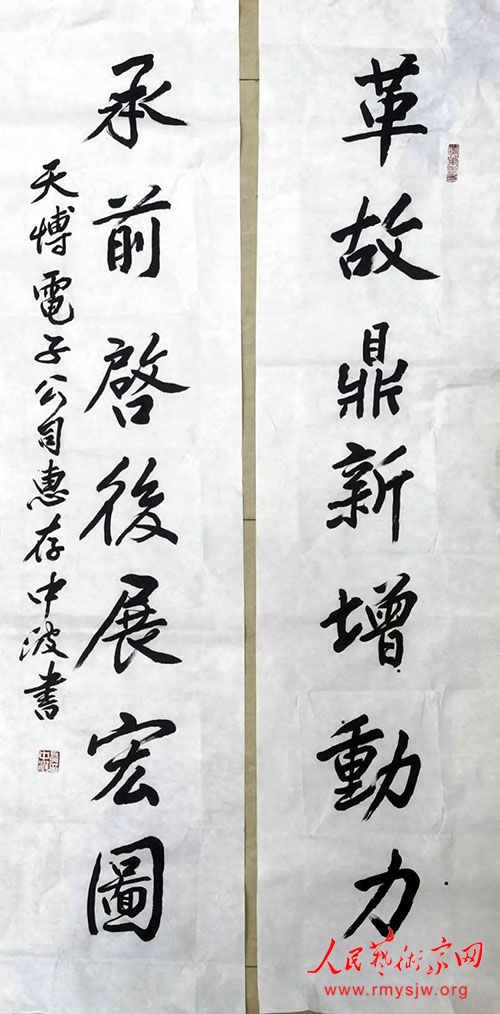 革故鼎新增動力
承前啓後展宏圖
天博電子公司惠存中波書
人民藝術家网
www.rmysjw.org